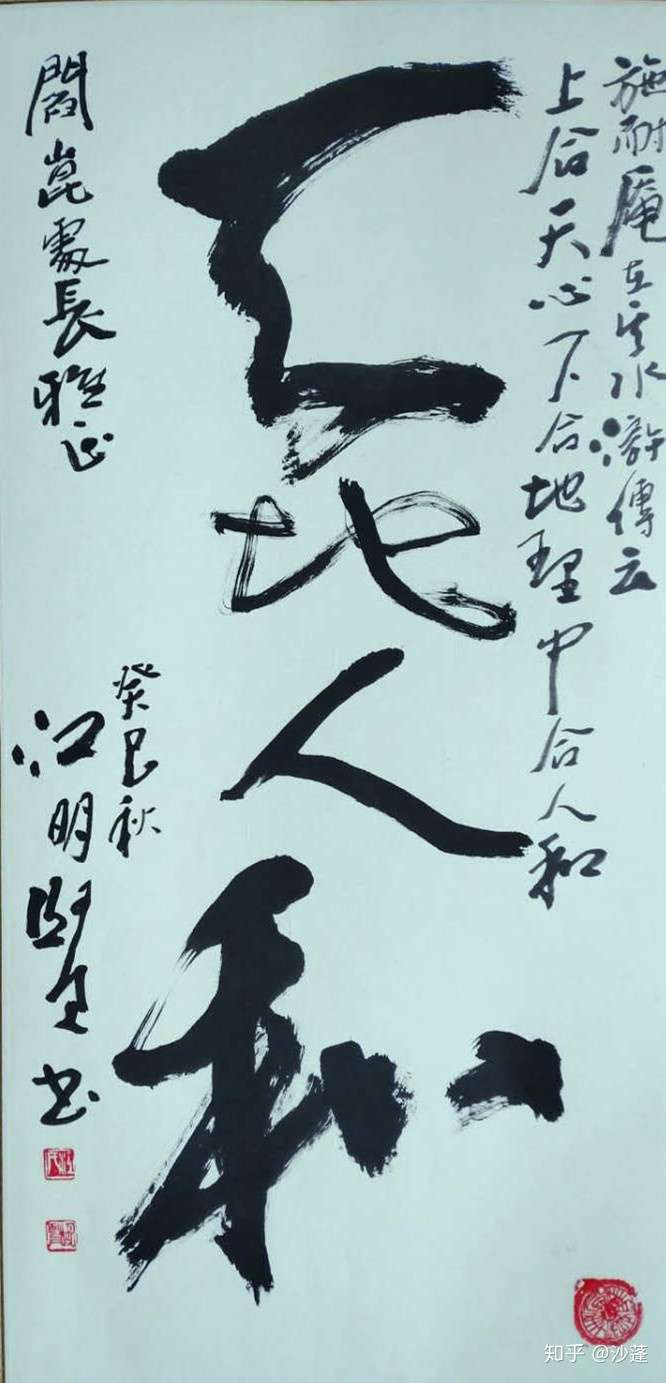 施耐庵在其水滸傳云
上合天心下合地理中合人和
天地人和
癸巳秋
江明賢書
閻崑處長雅正
知乎 @沙蓬